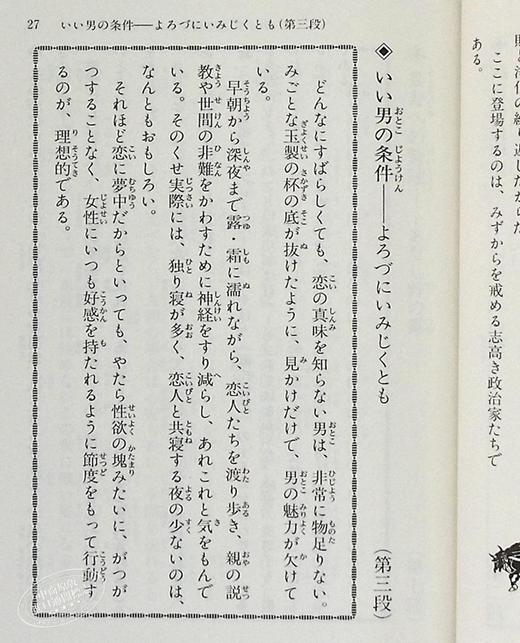 賄
ここに登場するのは、みずからを戒める志高き政治家たちで
ある。
27　いい男の条件──よろづにいみじくとも（第三段）
◆ いい男の条件──よろづにいみじくとも　（第三段）
どんなにすばらしくても、恋の真味を知らない男は、非常に物足りない。
みごとな玉製の杯の底が抜けたように、見かけだけで、男の魅力が欠けて
いる。
早朝から深夜まで露・霜に濡れながら、恋人たちを渡り歩き、親の説
教や世間の非難をかわすために神経をすり減らし、あれこれと気をもんで
いる。そのくせ実際には、独り寝が多く、恋人と共寝する夜の少ないのは、
なんともおもしろい。
それほど恋に夢中だからといっても、やたら性欲の塊みたいに、がつが
つすることなく、女性にいつも好感を持たれるように節度をもって行動す
るのが、理想的である。